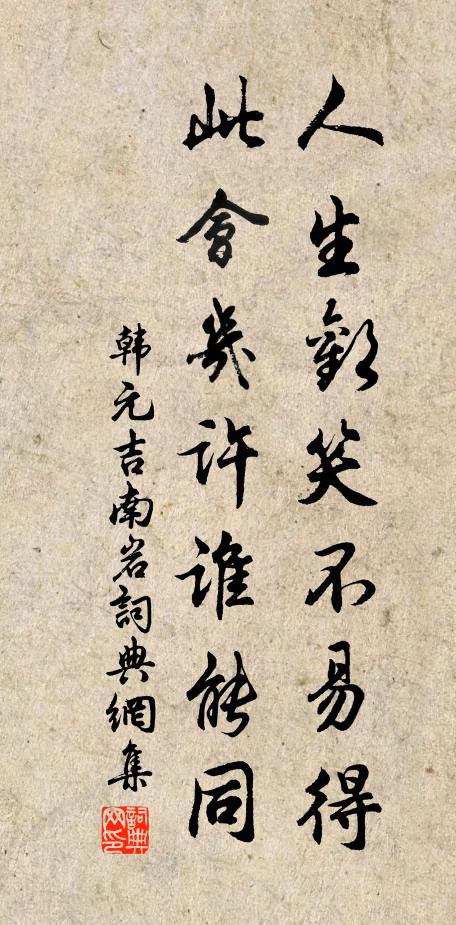 人生歡笑不易得
此會幾許誰能同
韩元吉南岩詞典網集
詞典网印